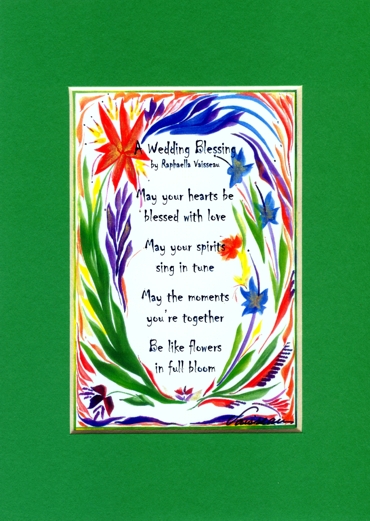 A Wedding Blessing
by Raphaella Vaisseau
May your hearts be
blessed with love
May your spirits
sing in tune
May the moments
you're together
Be like flowers
in full bloom
Vaisseau